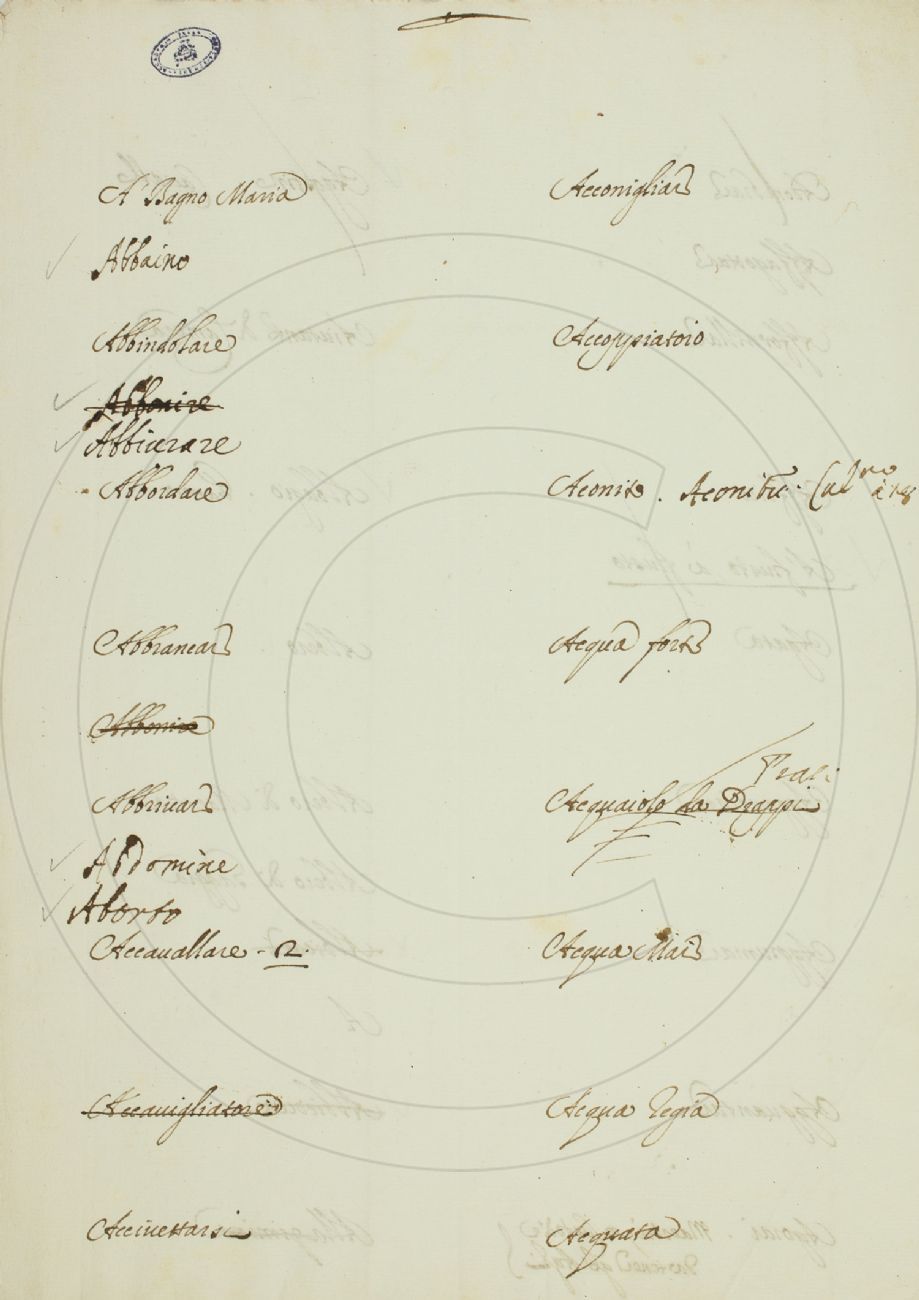 A' Bagno Maria
Abbaino
Abbindolare
Abbonire
Abbiurare
Abbordare
Abbrancare
Abbonire
Abbrivare
Abdomine
Aborto
Accavallare - 2.
Accavigliatore
Accivettarsi
Acconigliare
Accoppiatoio
Aconito . Aconitu.
Acqua forte
Acquaiolo da Drappi
Acqua Mare
Acqua Regia
Acquata